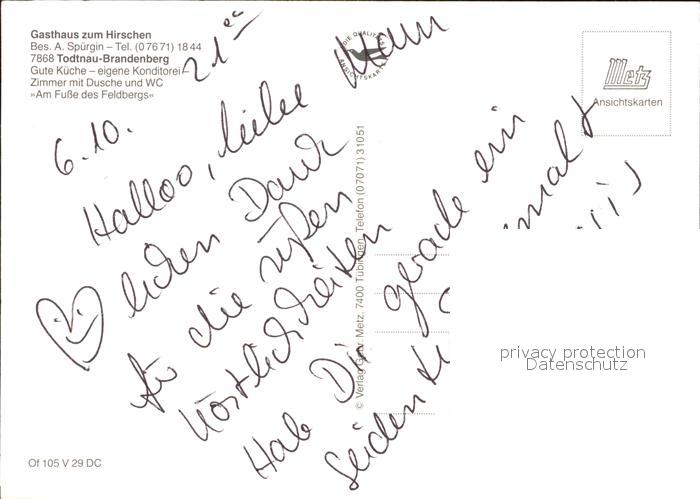 Gasthaus zum Hirschen
Bes. A. Spürgin – Tel. (0 76 71) 18 44
7868 Todtnau-Brandenberg
Gute Küche – eigene Konditorei –
Zimmer mit Dusche und WC
»Am Fuße des Feldbergs«
DIE QUALITÄTS
ANSICHTSKARTE
Metz
Ansichtskarten
6.10. 21°°
Halloo, lieber Mann
lichen Dank
für die süßen
Köstlichkeiten
Hab Dir gerade ein
Seiden
© Verlag Gebr. Metz, 7400 Tübingen, Telefon (07071) 31051
privacy protection
Datenschutz
Of 105 V 29 DC